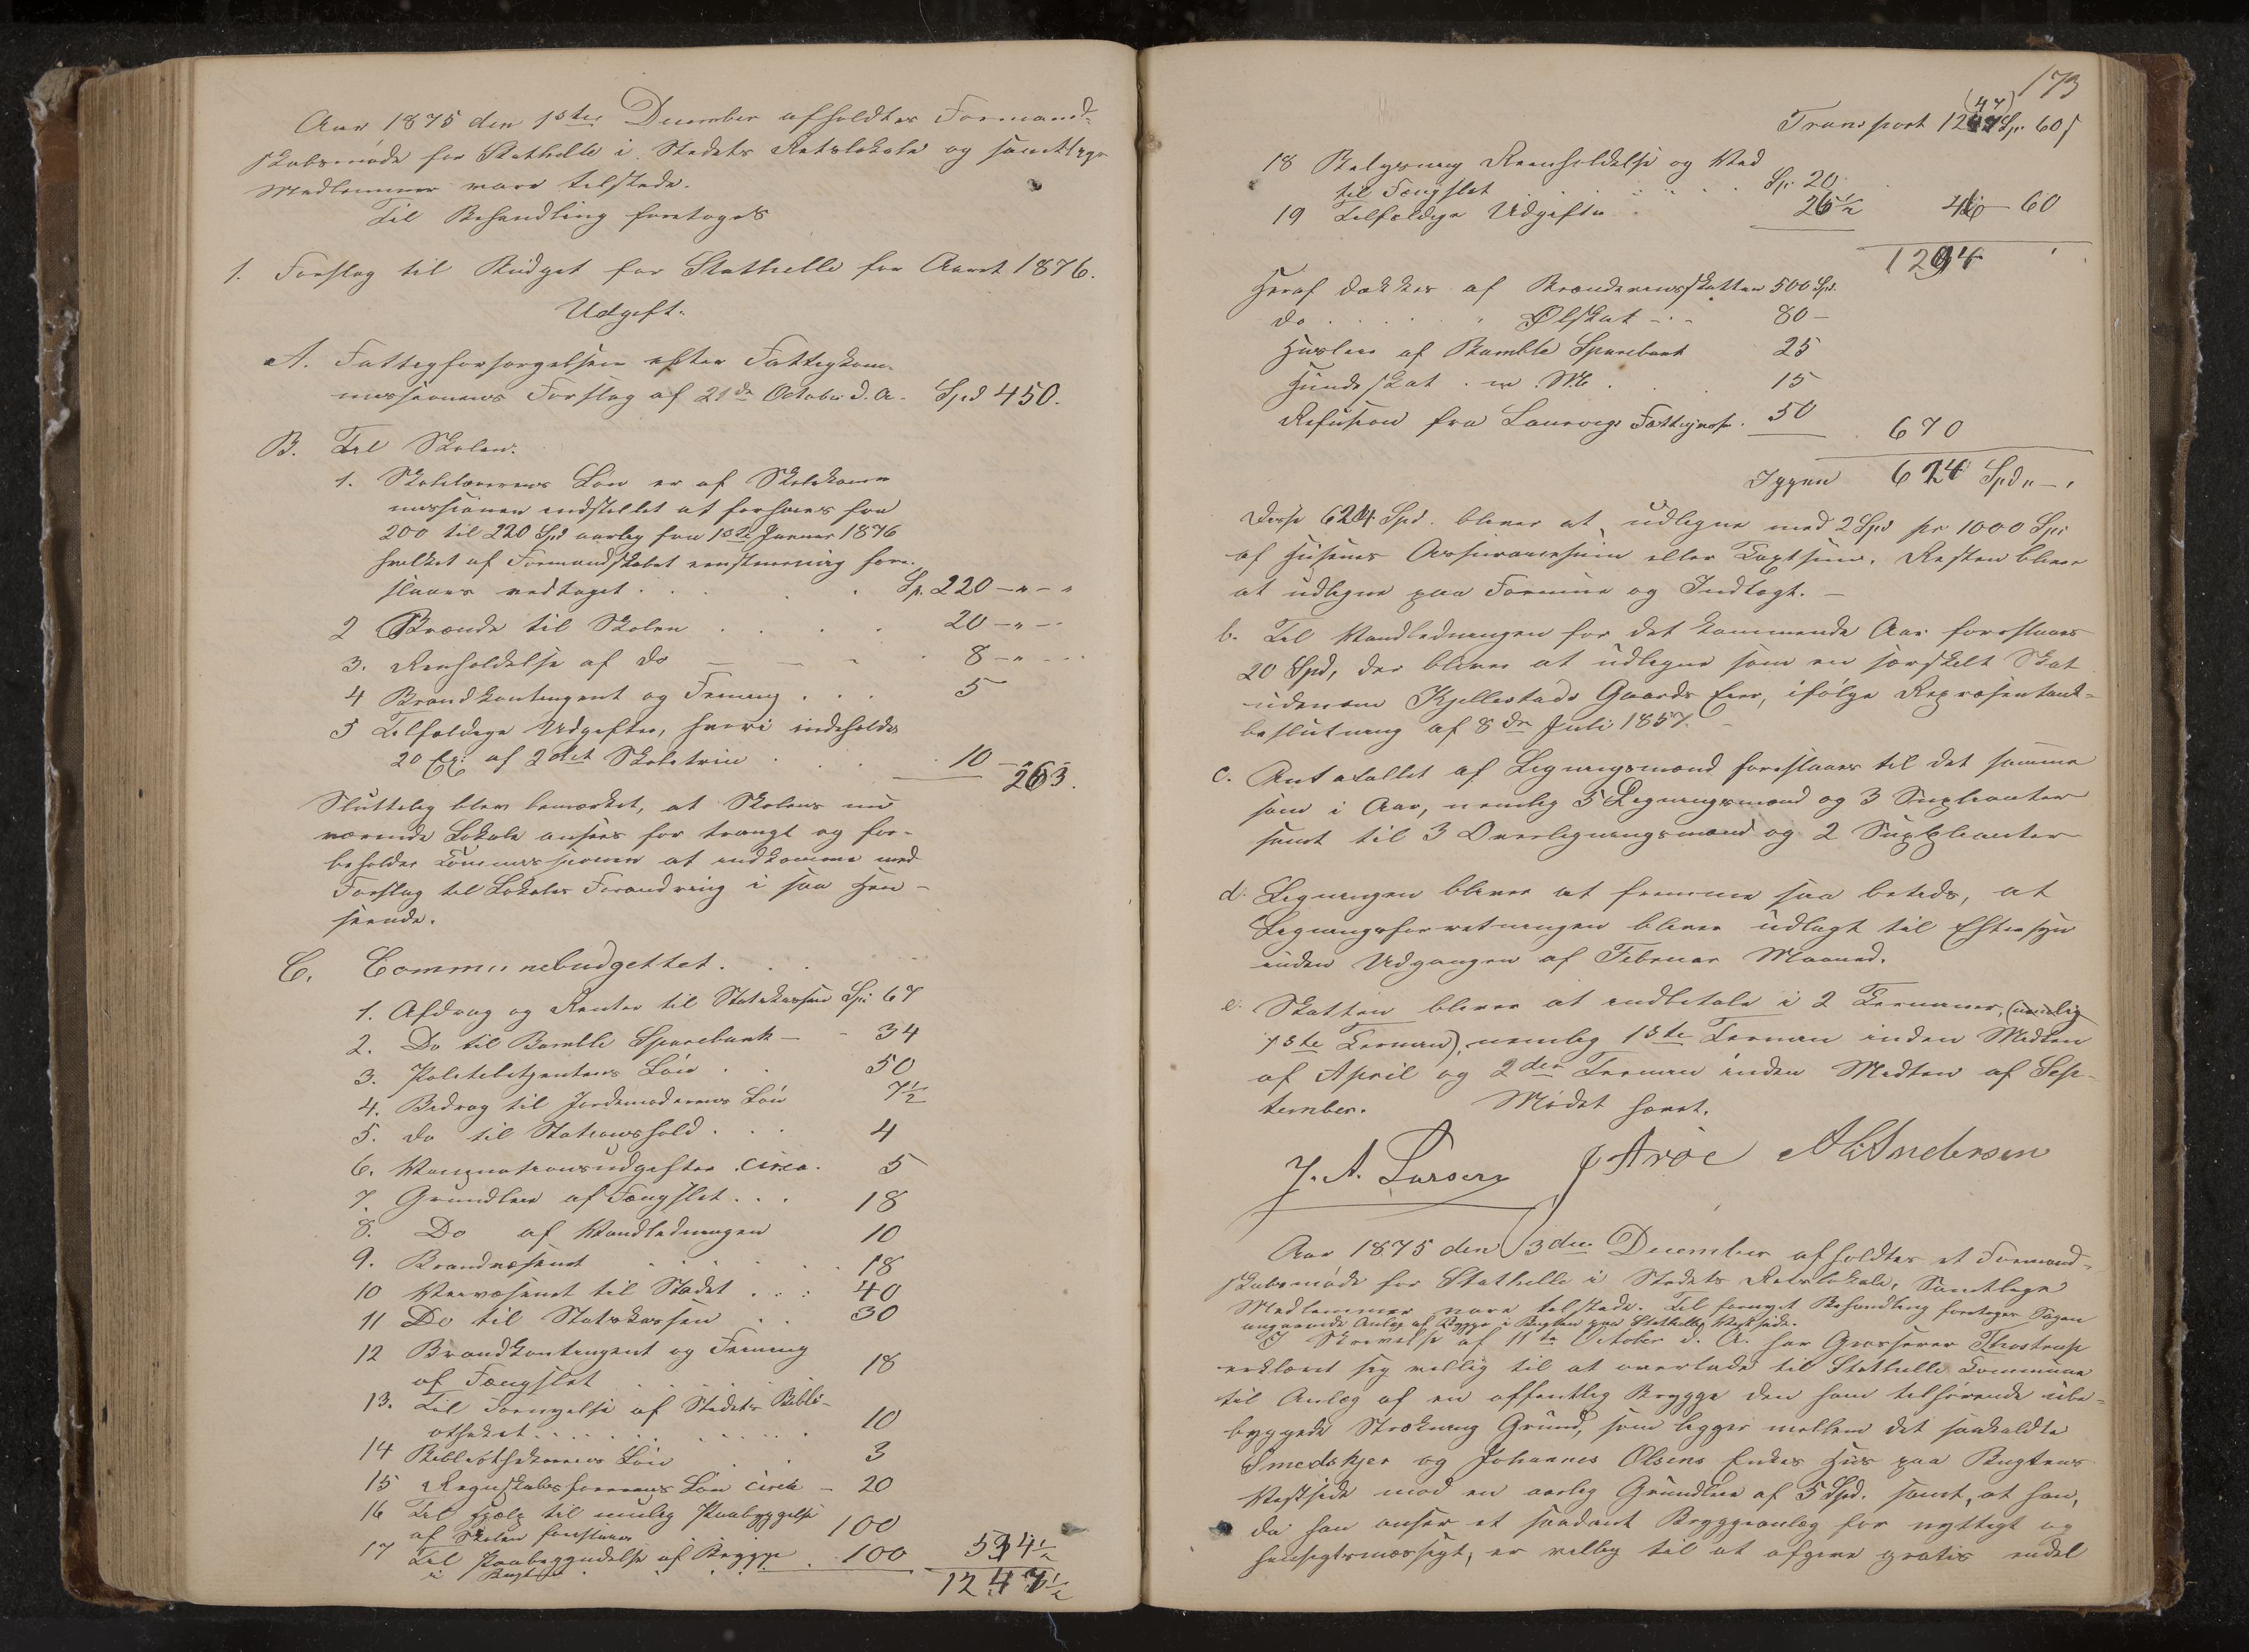 Aar 1875 den 1ste December afholdtes Formand-
skabsmøde for Stathelle i Stedets Retslokale og samtlige
Medlemmer vare tilstede.
Til Behandling foretoges
1. Forslag til Budget for Stathelle for Aaret 1876.
Udgift.
A. Fattigforsørgelsen efter Fattigkom-
missionens Forslag af 21de October d. A. Spd 450.
B. Til Skolen.
1. Skolelærerens Løn er af Skolekom-
missionen indstillet at forhøies fra
200 til 220 Spd aarlig fra 1ste Januar 1876
hvilket af Formandskabet enstemmig fore-
slaaes vedtaget . . . Sp. 220 – " – "
2 Brænde til Skolen . . . . 20 – " –
3. Renholdelse af do — — - 8 – "
4 Brandkontingent og Feining . . . 5
5 Tilfældige Udgifter, hvori indeholdes
20 Ex. af 2det Skoletrin . . . 10 – 263.
Sluttelig blev bemærket, at Skolens nu
værende Lokale ansees for trangt og for-
beholder Kommissionen at indkomme med
Forslag til Lokales Forandring i saa Hen-
seende.
C. Communebudgettet.
1. Afdrag og Renter til Statskassen Spd 67
2. Do til Bamble Sparebank – 34
3. Politibetjentens Løn . . 50
4. Bidrag til Jordemoderens Løn 7½
5. do til Stationshold . . . 4
6. Vaccinationsudgifter circa. 5
7. Grundleie af Fængslet . . . 18
8. Do af Vandledningen 10
9. Brandvæsenet . . . . 18
10 Veivæsenet til Stedet . . . 40
11 Do til Statskassen . . 30
12 Brandkontingent og Feining
af Fængslet . . . . 18
13. Til Fornyelse af Stedets Bibli-
otheket . . . . . 10
14 Bibliothekarens Løn . . 3
15 Regnskabsførerens Løn circa – 20
16 Til Hjælp til mulig Paabyggelse
af Skolen foreslaaes . . 100
17 Til Paabegyndelse af Brygge . 100 534½
i Bugten . . . 1247½
173
(47)
Transport 1247 Sp. 60 s
18 Belysning Renholdelse og Ved
til Fængslet . . . . Sp. 20
19 Tilfældige Udgifter . 26½ 46 – 60
1294
Heraf dækkes af Brænderiskatten 500 Spd.
do . . . . Ølskat – - 80 –
Husleie af Bamble Sparebank 25
Hundeskat . m. M. . . 15
Refusion fra Laurvigs Fattigvæsen . 50 670
Igjen 624 Spd " – "
Disse 624 Spd. bliver at udligne med 2 Spd pr 1000 Spd
af Husenes Assurancesum eller Taxtsum. Resten bliver
at udligne paa Formue og Indtægt. –
b. Til Vandledningen for det kommende Aar foreslaaes
20 Spd, der bliver at udligne som en særskilt Skat
udenom Kjellestads Gaards Eier, ifølge Repræsentant-
beslutning af 8de Juli 1857. –
c. Antallet af Ligningsmænd foreslaaes til det samme
som i Aar, nemlig 5 Ligningsmænd og 3 Suppleanter
samt til 3 Overligningsmænd og 2 Suppleanter
d. Ligningen bliver at fremme saa betids, at
Ligningsforretningen bliver udlagt til Eftersyn
inden Udgangen af Februar Maaned.
e. Skatten bliver at indbetale i 2 Terminer, (nemlig
1ste Termin), nemlig 1ste Termin inden Midten
af April og 2den Termin inden Midten af Sep-
tember. Mødet hævet.
J. A. Larsen J Arøe A Andersen
Aar 1875 den 13de December afholdtes et Formand-
skabsmøde for Stathelle i Stedets Retslokale, Samtlige
Medlemmer vare tilstede. Til fornyet Behandling foretoges Sagen
angaaende Anlæg af Brygge i Bugten paa Stathelles Vestside.
I Skrivelse af 11te October d. A. har Grosserer Thostrup
erklæret sig villig til at overlade til Stathelle Kommune
til Anlæg af en offentlig Brygge den ham tilhørende ube-
byggede Strækning Grund, som ligger mellem det saakaldte
Smedskjer og Johannes Olsens Enkes Hus paa Bugtens
Vestside mod en aarlig Grundleie af 5 Spd. samt, at han,
da han anser et saadant Bryggeanlæg for nyttigt og
hensigtsmæssigt, er villig til at afgive gratis endel